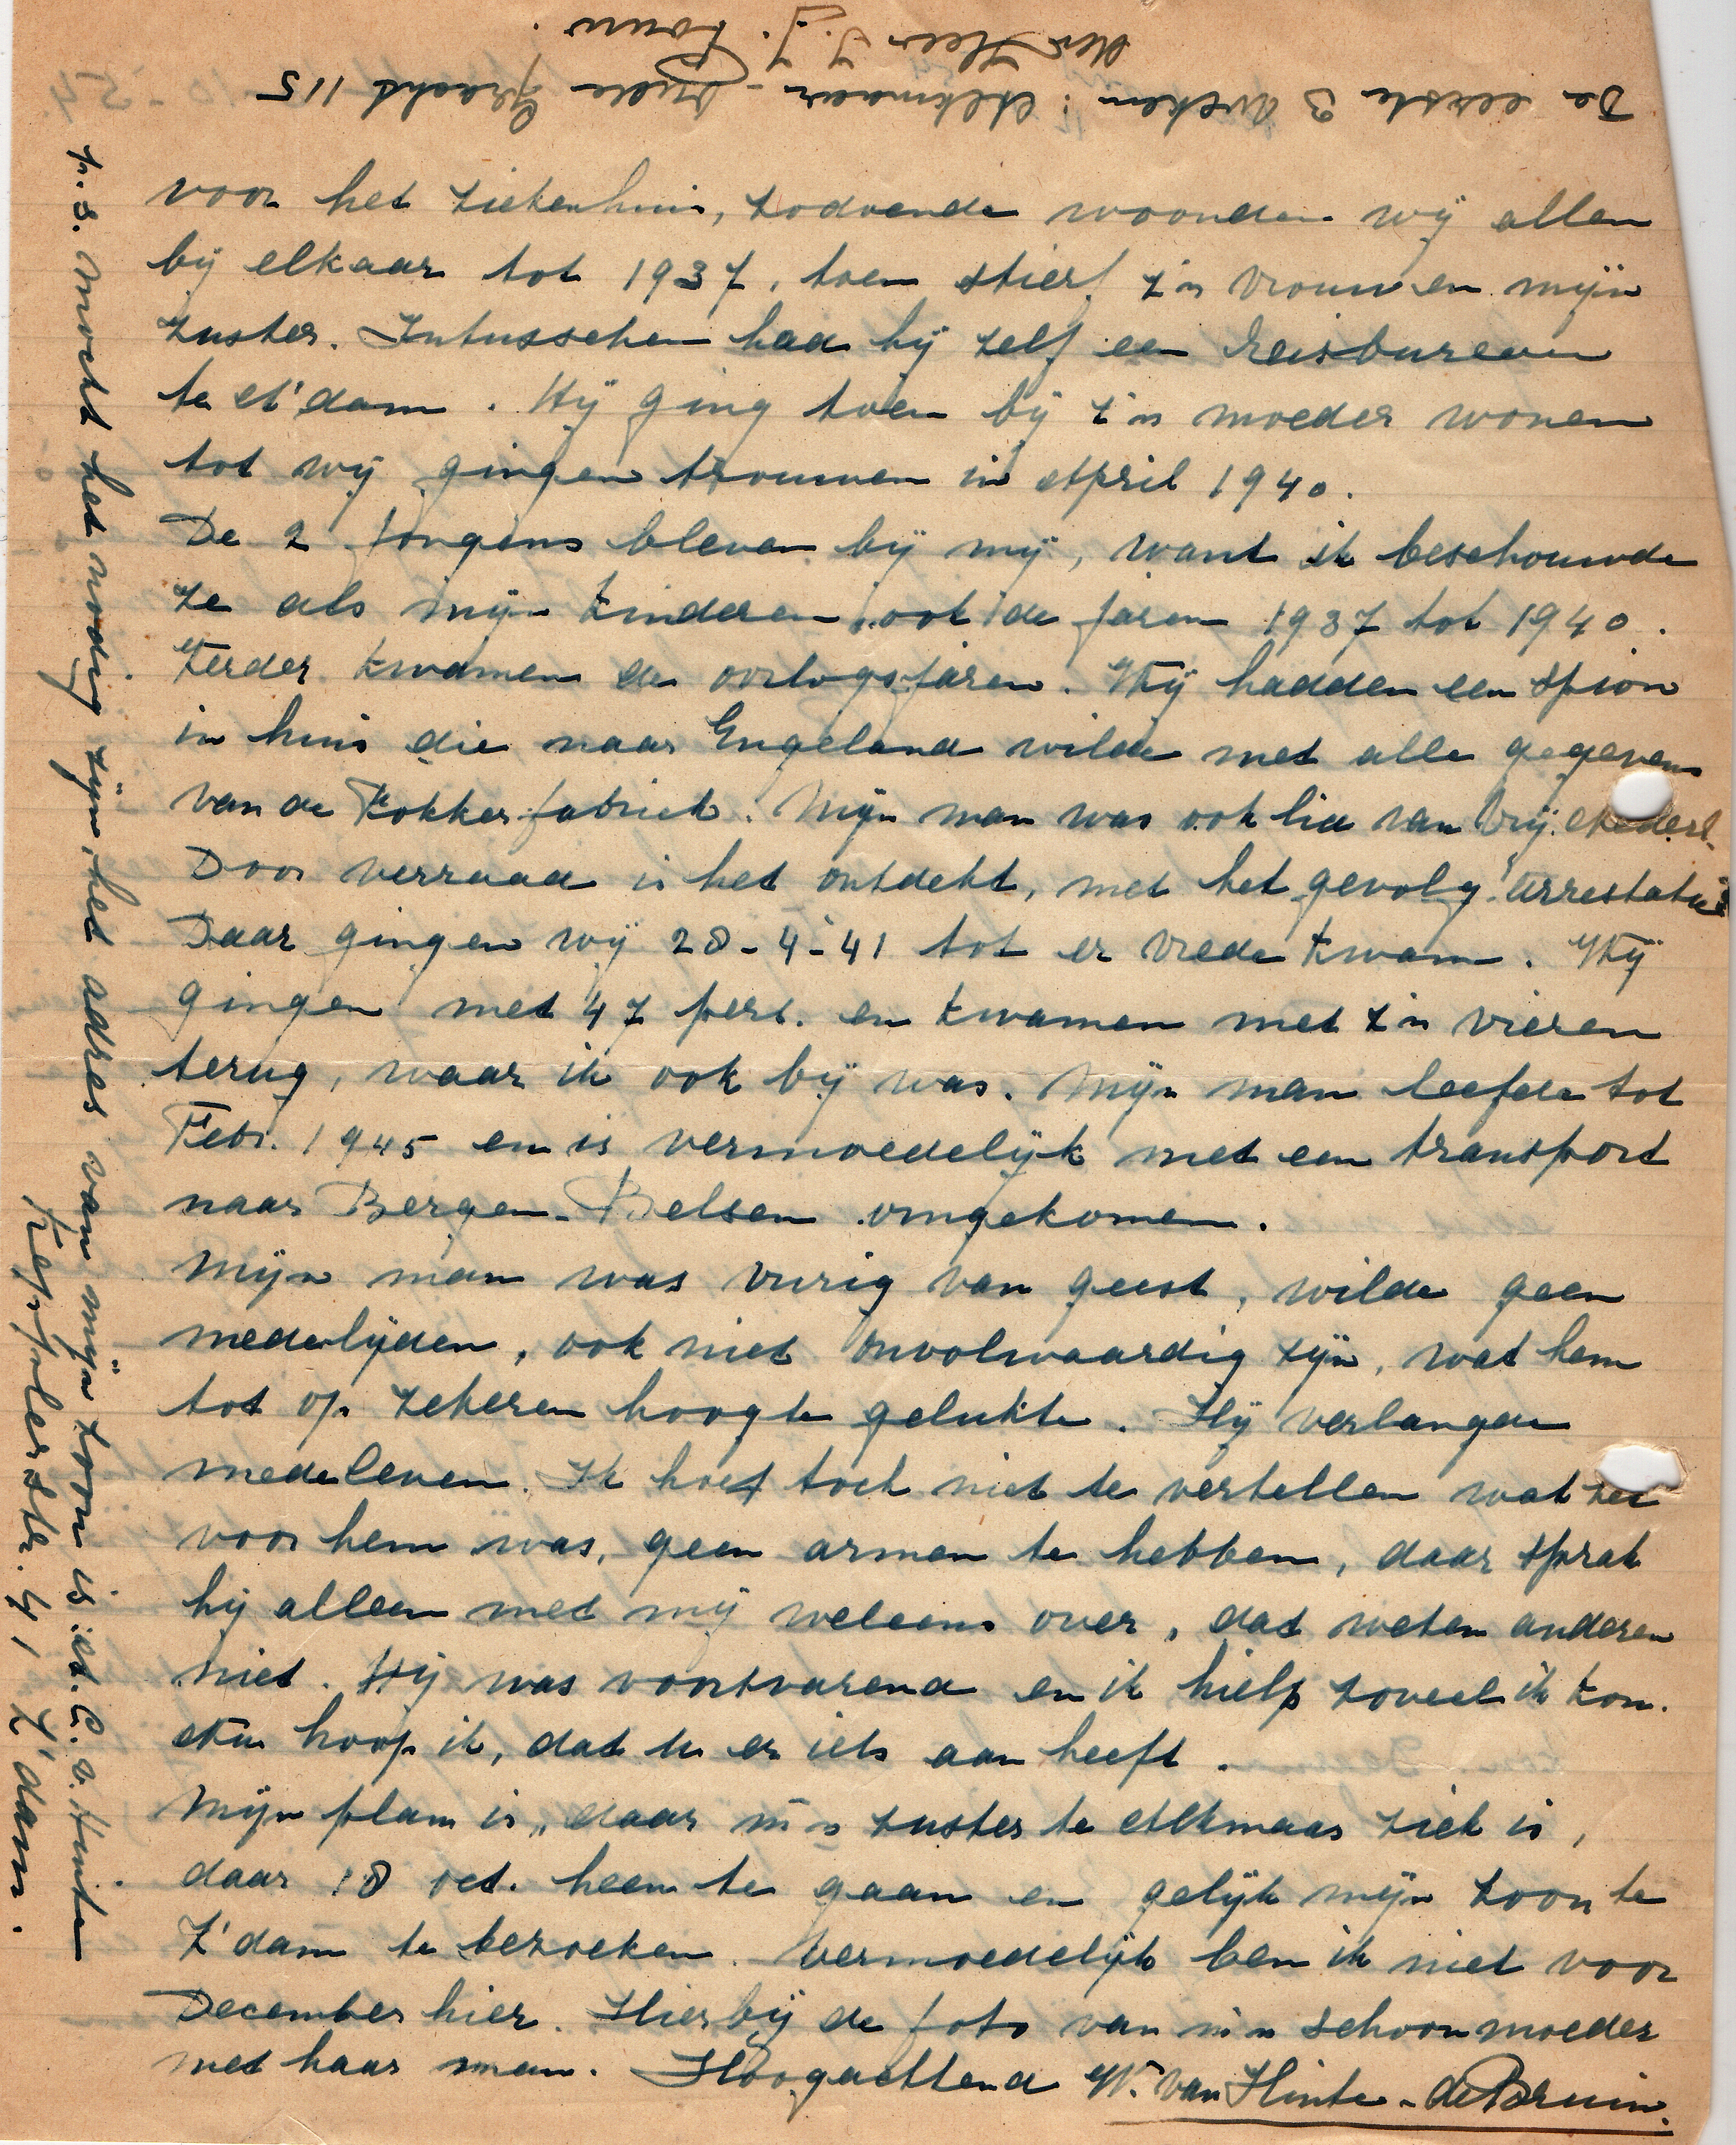 De eerste 3 weken: Alkmaar - Oude Gracht 115
den Heer J. J. Louw.
voor het ziekenhuis, zodoende woonden wij allen
bij elkaar tot 1937, toen stierf z'n vrouw en mijn
zuster. Intusschen had hij zelf een reisbureau
te A'dam. Hij ging toen bij z'n moeder wonen
tot wij gingen trouwen in April 1940.
De 2 jongens bleven bij mij, want ik beschouwde
ze als mijn kinderen, ook de jaren 1937 tot 1940.
Verder kwamen de oorlogsjaren. Wij hadden een spion
in huis die naar Engeland wilde met alle gegevens
van de Fokkerfabriek. Mijn man was ook lid van Vrij Nederl.
Door verraad is het ontdekt, met het gevolg arrestatie
Daar gingen wij 28-4-41 tot er vrede kwam. Wij
gingen met 47 pers. en kwamen met z'n vieren
terug, waar ik ook bij was. Mijn man leefde tot
Febr. 1945 en is vermoedelijk met een transport
naar Bergen-Belsen omgekomen.
Mijn man was vurig van geest, wilde geen
medelijden, ook niet onvolwaardig zijn, wat hem
tot op zekeren hoogte gelukte. Hij verlangde
medeleven. Ik hoef toch niet te vertellen wat het
voor hem was, geen armen te hebben, daar sprak
hij alleen met mij weleens over, dat weten anderen
niet. Hij was voortvarend en ik hielp zoveel ik kon.
Nu hoop ik, dat u er iets aan heeft.
Mijn plan is, daar m'n zuster te Alkmaar ziek is,
daar 18 oct. heen te gaan en gelijk mijn zoon te
Z'dam te bezoeken. Vermoedelijk ben ik niet voor
December hier. Hierbij de foto van m'n schoonmoeder
met haar man. Hoogachtend W. van Hinte-de Bruin.
p.s. Mocht het noodig zijn, het adres van mijn zoon is: A. C. v. Hinte
Kepplerstr. 41, Z'dam.